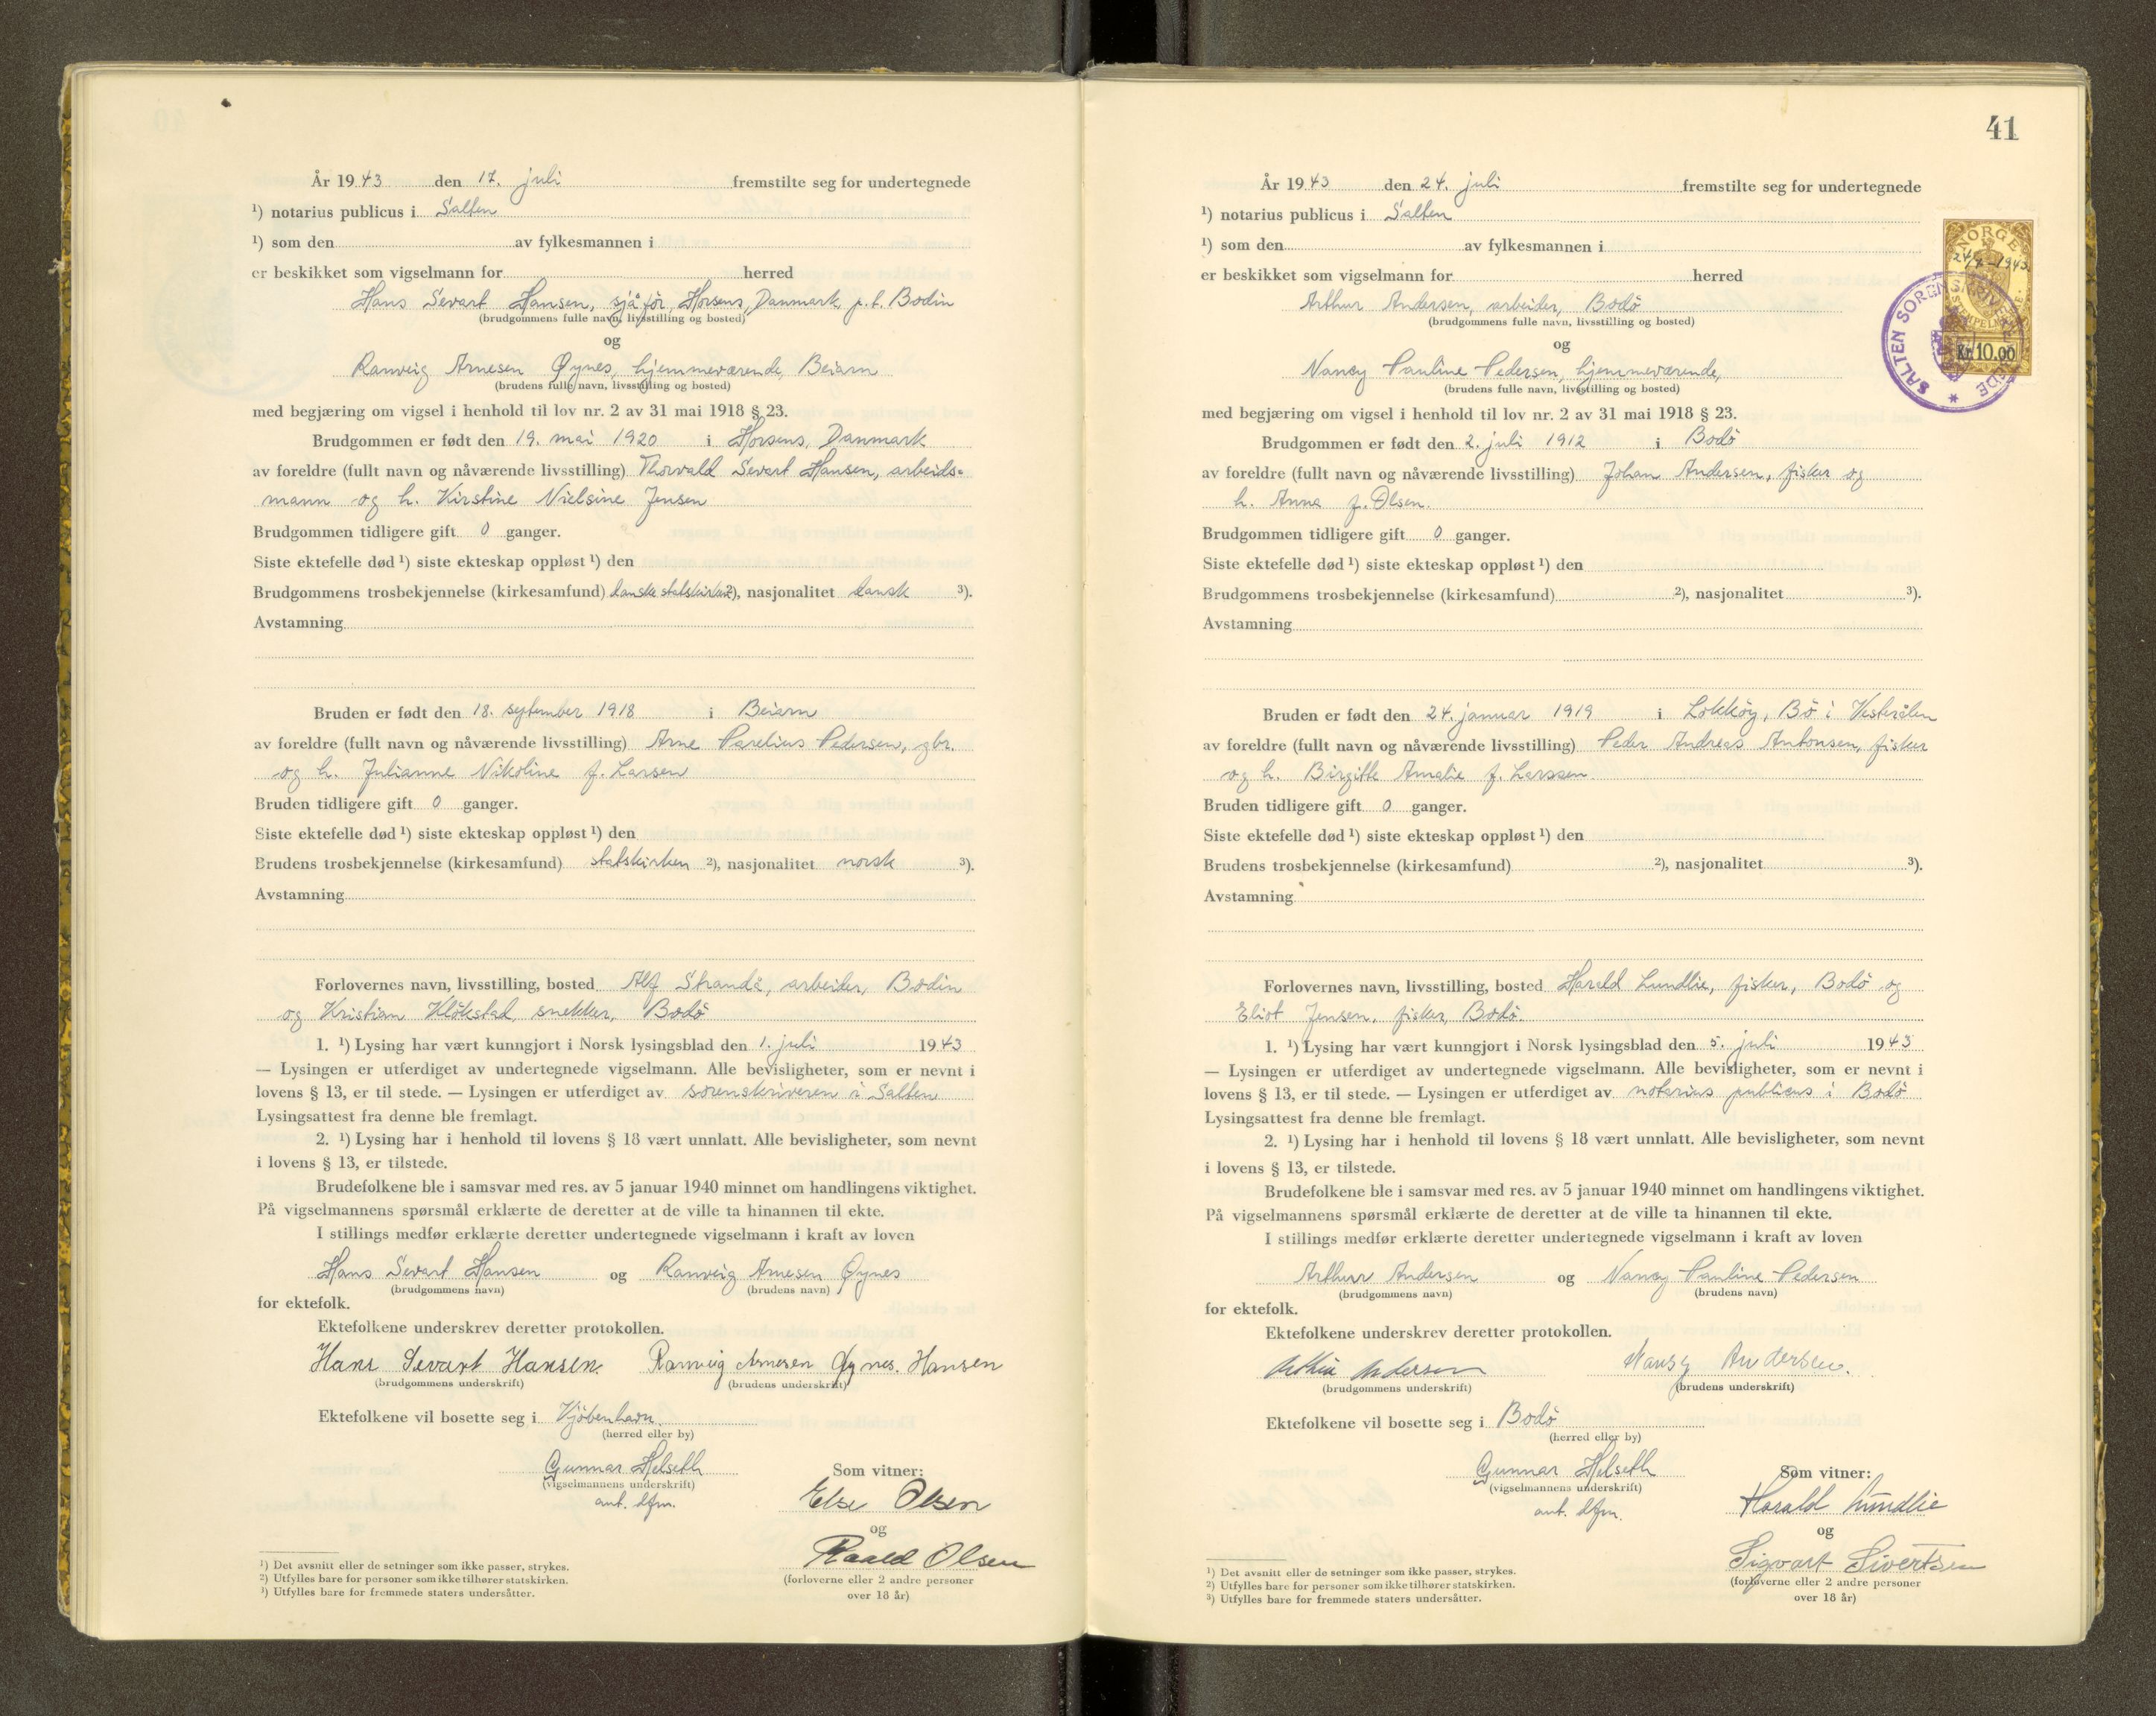 År 1943 den 17. juli fremstilte seg for undertegnede
¹) notarius publicus i Salten
¹) som den av fylkesmannen i
er beskikket som vigselmann for herred
Hans Sevart Hansen, sjåfør, Horsens, Danmark p.t. Bodin
(brudgommens fulle navn, livsstilling og bosted)
og
Ranveig Arnesen Øynes, hjemmeværende, Beiarn
(brudens fulle navn, livsstilling og bosted)
med begjæring om vigsel i henhold til lov nr. 2 av 31 mai 1918 § 23.
Brudgommen er født den 19. mai 1920 i Horsens, Danmark
av foreldre (fullt navn og nåværende livsstilling) Thorvald Sevart Hansen, arbeids-
mann og h. Kirstine Nielsine Jensen
Brudgommen tidligere gift 0 ganger.
Siste ektefelle død ¹) siste ekteskap oppløst ¹) den
Brudgommens trosbekjennelse (kirkesamfund) danske statskirke ²), nasjonalitet dansk ³).
Avstamning
Bruden er født den 18. september 1918 i Beiarn
av foreldre (fullt navn og nåværende livsstilling) Arne Parelius Pedersen, gbr.
og h. Julianne Nikoline f. Larsen
Bruden tidligere gift 0 ganger.
Siste ektefelle død ¹) siste ekteskap oppløst ¹) den
Brudens trosbekjennelse (kirkesamfund) statskirken ²), nasjonalitet norsk ³).
Avstamning
Forlovernes navn, livsstilling, bosted Alf Strandå, arbeider, Bodin
og Kristian Kløkstad, snekker, Bodø
1. ¹) Lysing har vært kunngjort i Norsk lysingsblad den 1. juli 1943
— Lysingen er utferdiget av undertegnede vigselmann. Alle bevisligheter, som er nevnt i
lovens § 13, er til stede. — Lysingen er utferdiget av sorenskriveren i Salten
Lysingsattest fra denne ble fremlagt.
2. ¹) Lysing har i henhold til lovens § 18 vært unnlatt. Alle bevisligheter, som nevnt
i lovens § 13, er tilstede.
Brudefolkene ble i samsvar med res. av 5 januar 1940 minnet om handlingens viktighet.
På vigselmannens spørsmål erklærte de deretter at de ville ta hinannen til ekte.
I stillings medfør erklærte deretter undertegnede vigselmann i kraft av loven
Hans Sevart Hansen og Ranveig Arnesen Øynes
(brudgommens navn) (brudens navn)
for ektefolk.
Ektefolkene underskrev deretter protokollen.
Hans Sevart Hansen. Ranveig Arnesen Øynes. Hansen
(brudgommens underskrift) (brudens underskrift)
Ektefolkene vil bosette seg i Kjøbenhavn.
(herred eller by)
Gunnar Helseth Som vitner:
(vigselmannens underskrift)
ant. dfm.
Else Olsen
og
Roald Olsen
(forloverne eller 2 andre personer
over 18 år)
¹) Det avsnitt eller de setninger som ikke passer, strykes.
²) Utfylles bare for personer som ikke tilhører statskirken.
³) Utfylles bare for fremmede staters undersåtter.
41
År 1943 den 24. juli fremstilte seg for undertegnede
¹) notarius publicus i Salten
¹) som den av fylkesmannen i
er beskikket som vigselmann for herred
NORGE
24/7-1943
STEMPELMERKE
Kr. 10.00
SALTEN SORENSKRIVEREMBEDE
Arthur Andersen, arbeider, Bodø
(brudgommens fulle navn, livsstilling og bosted)
og
Nancy Pauline Pedersen, hjemmeværende,
(brudens fulle navn, livsstilling og bosted)
med begjæring om vigsel i henhold til lov nr. 2 av 31 mai 1918 § 23.
Brudgommen er født den 2. juli 1912 i Bodø
av foreldre (fullt navn og nåværende livsstilling) Johan Andersen, fisker og
h. Anna f. Olsen.
Brudgommen tidligere gift 0 ganger.
Siste ektefelle død ¹) siste ekteskap oppløst ¹) den
Brudgommens trosbekjennelse (kirkesamfund) ²), nasjonalitet ³).
Avstamning
Bruden er født den 24. januar 1919 i Lokkøy, Bø i Vesterålen
av foreldre (fullt navn og nåværende livsstilling) Peder Andreas Antonsen, fisker
og h. Birgitte Amalie f. Larssen
Bruden tidligere gift 0 ganger.
Siste ektefelle død ¹) siste ekteskap oppløst ¹) den
Brudens trosbekjennelse (kirkesamfund) ²), nasjonalitet ³).
Avstamning
Forlovernes navn, livsstilling, bosted Harald Lundlie, fisker, Bodø og
Eliot Jensen, fisker, Bodø.
1. ¹) Lysing har vært kunngjort i Norsk lysingsblad den 5. juli 1943
— Lysingen er utferdiget av undertegnede vigselmann. Alle bevisligheter, som er nevnt i
lovens § 13, er til stede. — Lysingen er utferdiget av notarius publicus i Bodø
Lysingsattest fra denne ble fremlagt.
2. ¹) Lysing har i henhold til lovens § 18 vært unnlatt. Alle bevisligheter, som nevnt
i lovens § 13, er tilstede.
Brudefolkene ble i samsvar med res. av 5 januar 1940 minnet om handlingens viktighet.
På vigselmannens spørsmål erklærte de deretter at de ville ta hinannen til ekte.
I stillings medfør erklærte deretter undertegnede vigselmann i kraft av loven
Arthur Andersen og Nancy Pauline Pedersen
(brudgommens navn) (brudens navn)
for ektefolk.
Ektefolkene underskrev deretter protokollen.
Arthur Andersen Nansy Andersen.
(brudgommens underskrift) (brudens underskrift)
Ektefolkene vil bosette seg i Bodø
(herred eller by)
Gunnar Helseth Som vitner:
(vigselmannens underskrift)
ant. dfm.
Harald Lundlie
og
Sigvart Sivertsen
(forloverne eller 2 andre personer
over 18 år)
¹) Det avsnitt eller de setninger som ikke passer, strykes.
²) Utfylles bare for personer som ikke tilhører statskirken.
³) Utfylles bare for fremmede staters undersåtter.